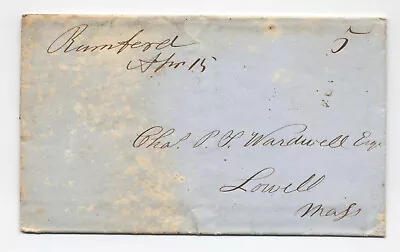 Rumford 5
Apr 15
Chas. P. S. Wardwell Esq
Lowell
Mass